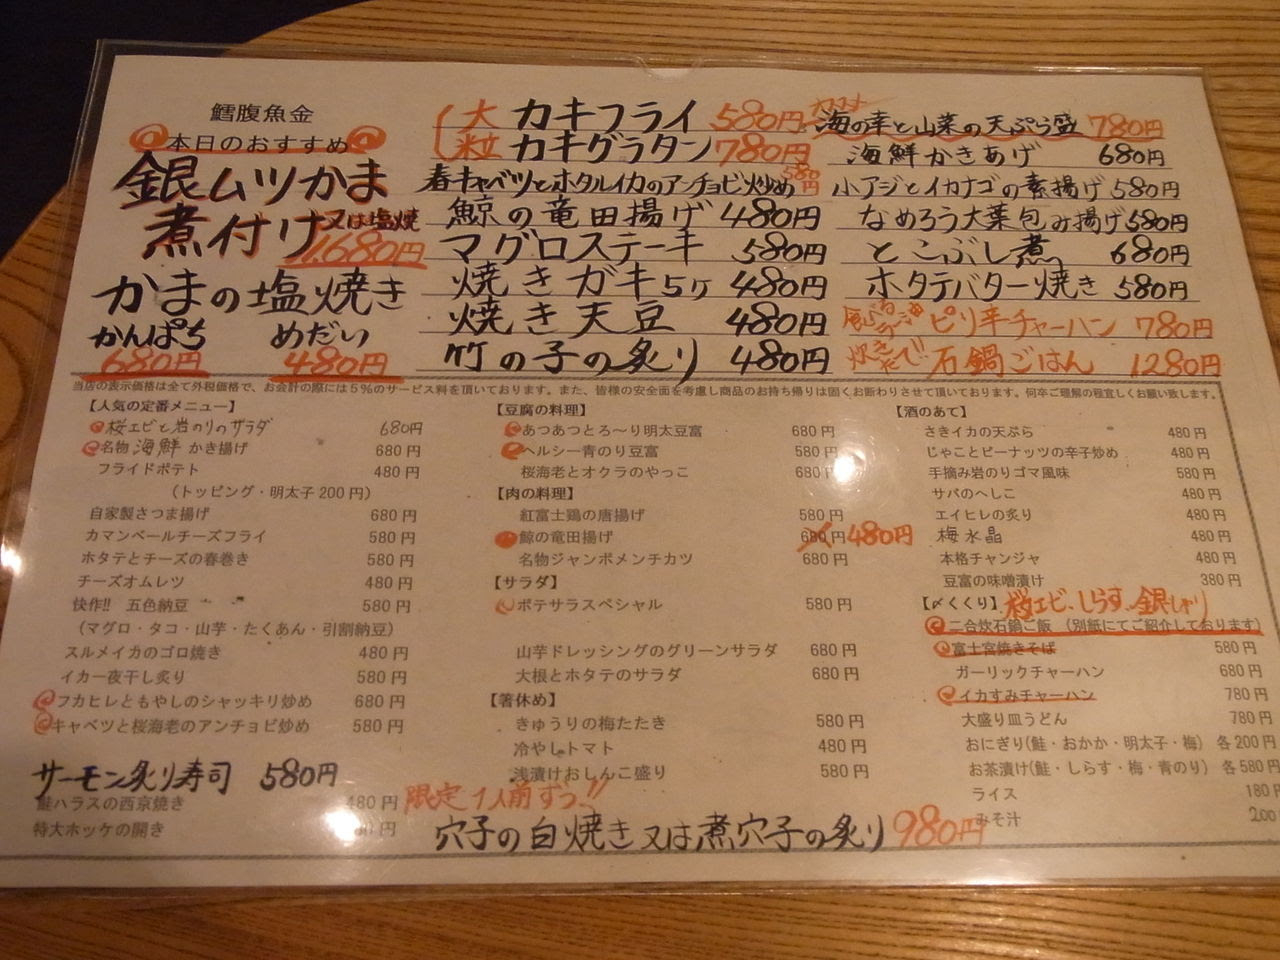 鱈腹魚金
本日のおすすめ
銀ムツかま
煮付け又は塩焼
1680円
かまの塩焼き
かんぱち めだい
680円 480円
大粒 カキフライ 580円
カキグラタン 780円
春キャベツとホタルイカのアンチョビ炒め 580円
鯨の竜田揚げ 480円
マグロステーキ 580円
焼きガキ5ヶ 480円
焼き天豆 480円
竹の子の炙り 480円
オススメ 海の幸と山菜の天ぷら盛 780円
海鮮かきあげ 680円
小アジとイカナゴの素揚げ 580円
なめろう大葉包み揚げ 580円
とこぶし煮 680円
ホタテバター焼き 580円
ピリ辛チャーハン 780円
炊きたて 石鍋ごはん 1280円
当店の表示価格は全て外税価格で、お会計の際には5%のサービス料を頂いております。また、皆様の安全面を考慮し商品のお持ち帰りは固くお断わりさせて頂いております。何卒ご理解の程宜しくお願い致します。
【人気の定番メニュー】
桜エビと岩のりのサラダ 680円
名物海鮮かき揚げ 680円
フライドポテト 480円
(トッピング・明太子200円)
自家製さつま揚げ 680円
カマンベールチーズフライ 580円
ホタテとチーズの春巻き 580円
チーズオムレツ 480円
快作!! 五色納豆 580円
(マグロ・タコ・山芋・たくあん・引割納豆)
スルメイカのゴロ焼き 480円
イカ一夜干し炙り 580円
フカヒレともやしのシャッキリ炒め 680円
キャベツと桜海老のアンチョビ炒め 580円
サーモン炙り寿司 580円
鮭ハラスの西京焼き 480円
特大ホッケの開き
【豆腐の料理】
あつあつとろ〜り明太豆富 680円
ヘルシー青のり豆富 580円
桜海老とオクラのやっこ
【肉の料理】
紅富士鶏の唐揚げ 580円
鯨の竜田揚げ 680円 480円
名物ジャンボメンチカツ 680円
【サラダ】
ポテサラスペシャル 580円
山芋ドレッシングのグリーンサラダ 680円
大根とホタテのサラダ 680円
【箸休め】
きゅうりの梅たたき 580円
冷やしトマト 480円
浅漬けおしんこ盛り 580円
限定1人前ずつ!!
穴子の白焼き又は煮穴子の炙り 980円
【酒のあて】
さきイカの天ぷら 480円
じゃことピーナッツの辛子炒め 480円
手摘み岩のりゴマ風味 580円
サバのへしこ 480円
エイヒレの炙り 480円
梅水晶 480円
本格チャンジャ 480円
豆富の味噌漬け 380円
【〆くくり】桜エビ、しらす、銀しゃり
二合炊石鍋ご飯 (別紙にてご紹介しております)
富士宮焼きそば 580円
ガーリックチャーハン 680円
イカすみチャーハン 780円
大盛り皿うどん 780円
おにぎり(鮭・おかか・明太子・梅) 各200円
お茶漬け(鮭・しらす・梅・青のり) 各580円
ライス 180円
みそ汁 200